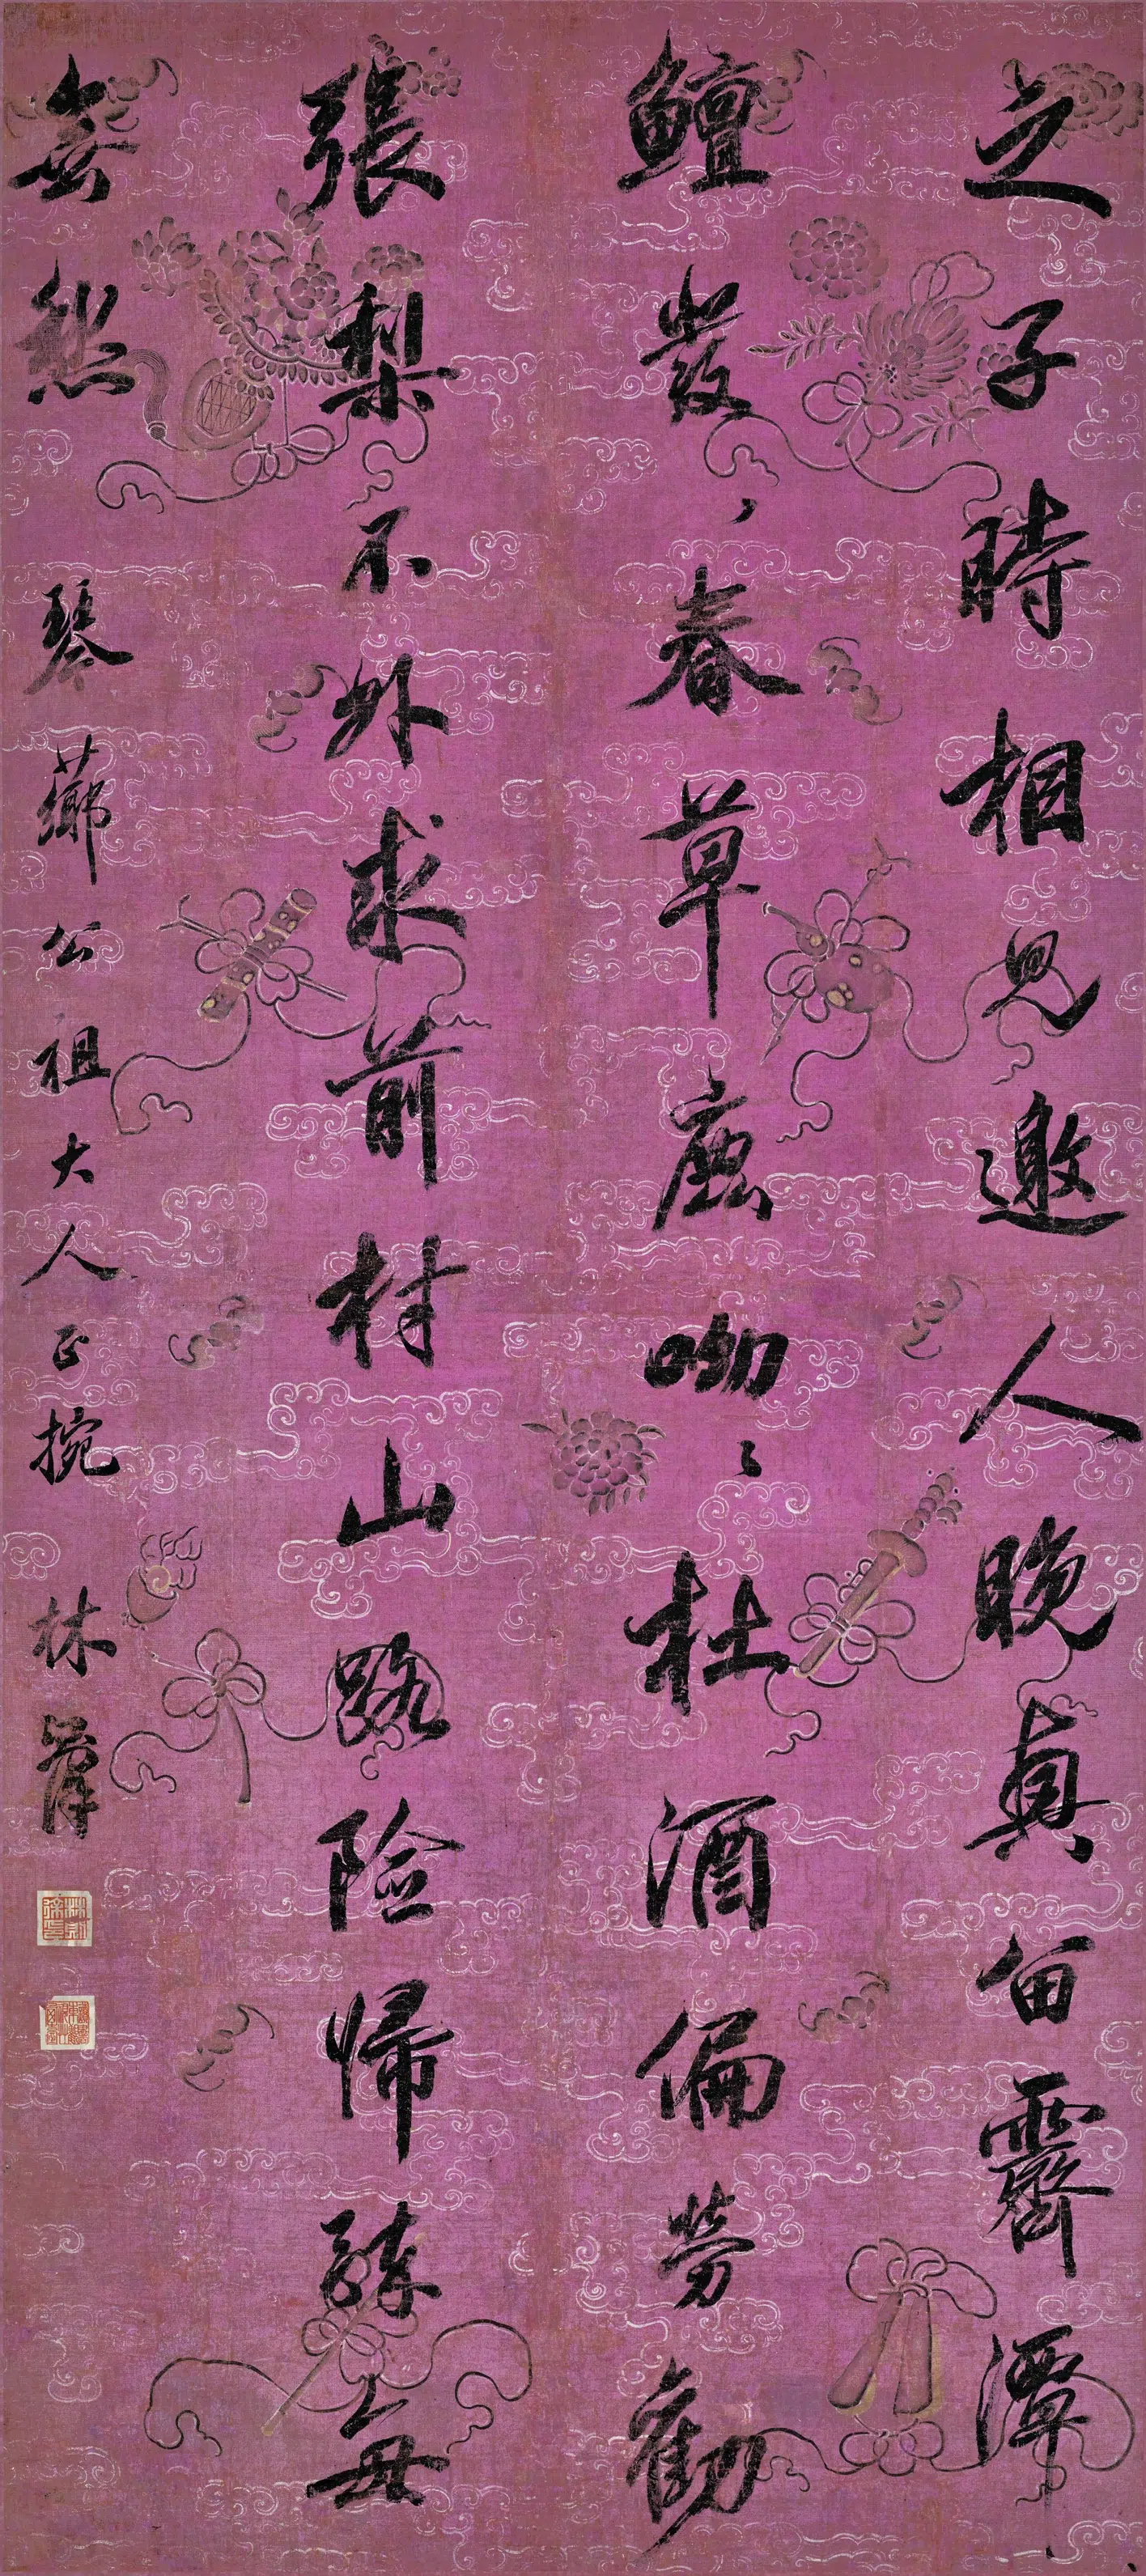 之子時相見邀人晚興留霽潭
鱣發〻春草鹿呦〻杜酒偏勞勸
張梨不外求前村山路險歸醉每
無愁 琴薌公祖大人正捥 林則徐
林則徐印